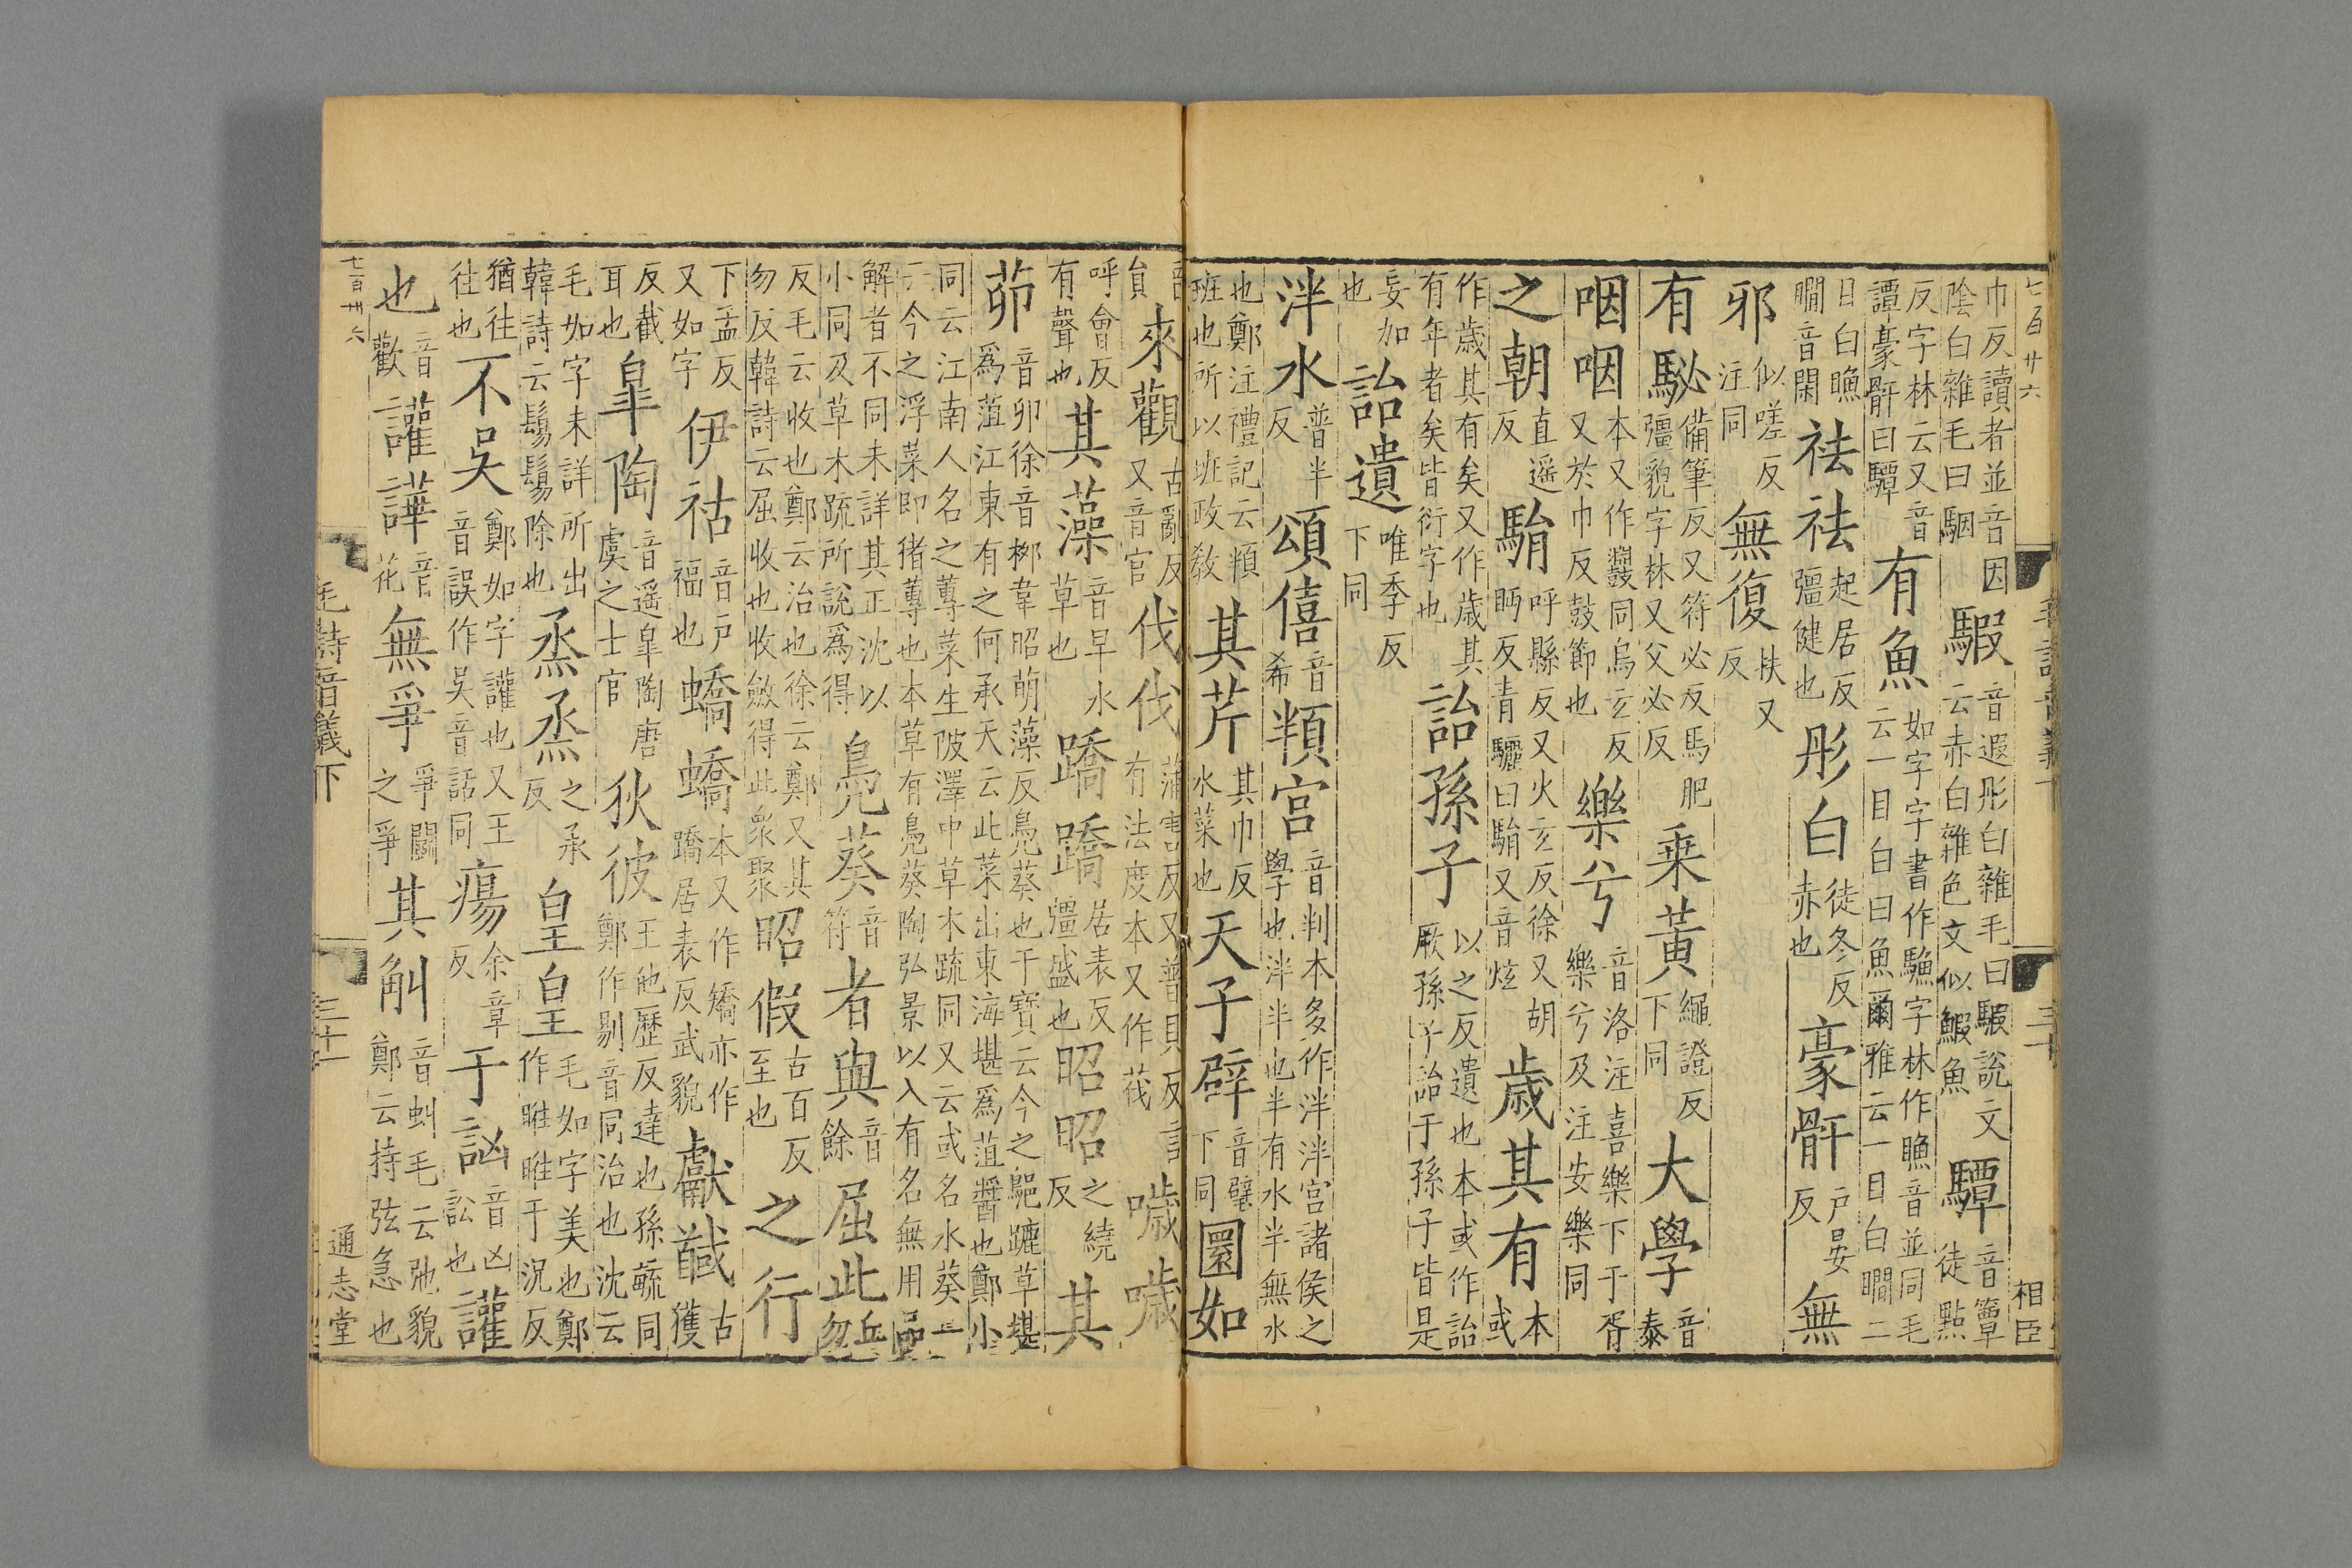 七百廿六 毛詩音義下 三十 相臣
巾反讀者並音因
陰白雜毛曰駰
騢
音遐彤白雜毛曰騢說文
云赤白雜色文似鰕魚
驔
音簟
徒點
反字林云又音
譚豪骭曰驔
有魚
如字字書作䱷字林作𥇆音並同毛
云一目白曰魚爾雅云一目白瞷二
目白𥇆
瞷音閑
祛祛
起居反
彊健也
彤白
徒冬反
赤也
豪骭
戶晏
反
無
邪
似嗟反
注同
無復
扶又
反
有駜
備筆反又符必反馬肥
彊貌字林又父必反
乗黃
繩證反
下同
大學
音
泰
咽咽
本又作鼝同烏玄反
又於巾反鼓節也
樂兮
音洛注喜樂下于胥
樂兮及注安樂同
之朝
直遥
反
駽
呼縣反又火玄反徐又胡
眄反青驪曰駽又音炫
歲其有
本
或
作歲其有矣又作歲其
有年者矣皆衍字也
詒孫子
以之反遺也本或作詒
厥孫子詒于孫子皆是
妄加
也
詒遺
唯季反
下同
泮水
普半
反
頌僖
音
希
頖宮
音判本多作泮泮宮諸侯之
學也泮半也半有水半無水
也鄭注禮記云頖
班也所以班政敎
其芹
其巾反
水菜也
天子辟
音璧
下同
圜如
音
貟
來觀
古亂反
又音官
伐伐
蒲害反又普貝反言
有法度本又作茷
噦噦
呼會反
有聲也
其藻
音早水
草也
蹻蹻
居表反
彊盛也
昭昭
之繞
反
其
茆
音卯徐音柳韋昭萌藻反鳬葵也干寶云今之䳱蹗草堪
爲菹江東有之何承天云此菜出東海堪爲菹醬也鄭小
同云江南人名之蓴菜生陂澤中草木疏同又云或名水葵一
云今之浮菜即猪蓴也本草有鳬葵陶弘景以入有名無用品
解者不同未詳其正沈以
小同及草木疏所說爲得
鳬葵
音
符
者與
音
餘
屈此
丘
勿
反毛云收也鄭云治也徐云鄭又其
勿反韓詩云屈收也收斂得此衆聚
昭假
古百反
至也
之行
下孟反
又如字
伊祜
音戶
福也
蟜蟜
本又作矯亦作
蹻居表反武貌
獻馘
古
獲
反截
耳也
皐陶
音遥皐陶唐
虞之士官
狄彼
王他歷反遠也孫毓同
鄭作剔音同治也沈云
毛如字未詳所出
韓詩云鬄鬄除也
烝烝
之承
反
皇皇
毛如字美也鄭
作暀暀于況反
猶往
往也
不吳
鄭如字讙也又王
音誤作吳音話同
瘍
余章
反
于訩
音凶
訟也
讙
也
音
歡
讙譁
音
花
無爭
爭鬬
之爭
其觓
音虯毛云弛貌
鄭云持弦急也
七百卅六 毛詩音義下 三十一 通志堂